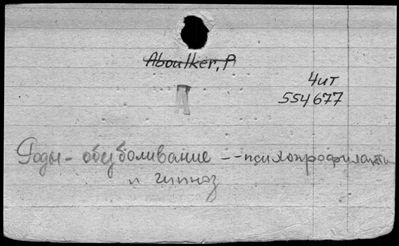 Aboulker, P
Л
4ит
554677
Роды - обезболивание -- психопрофилакти
и гипноз